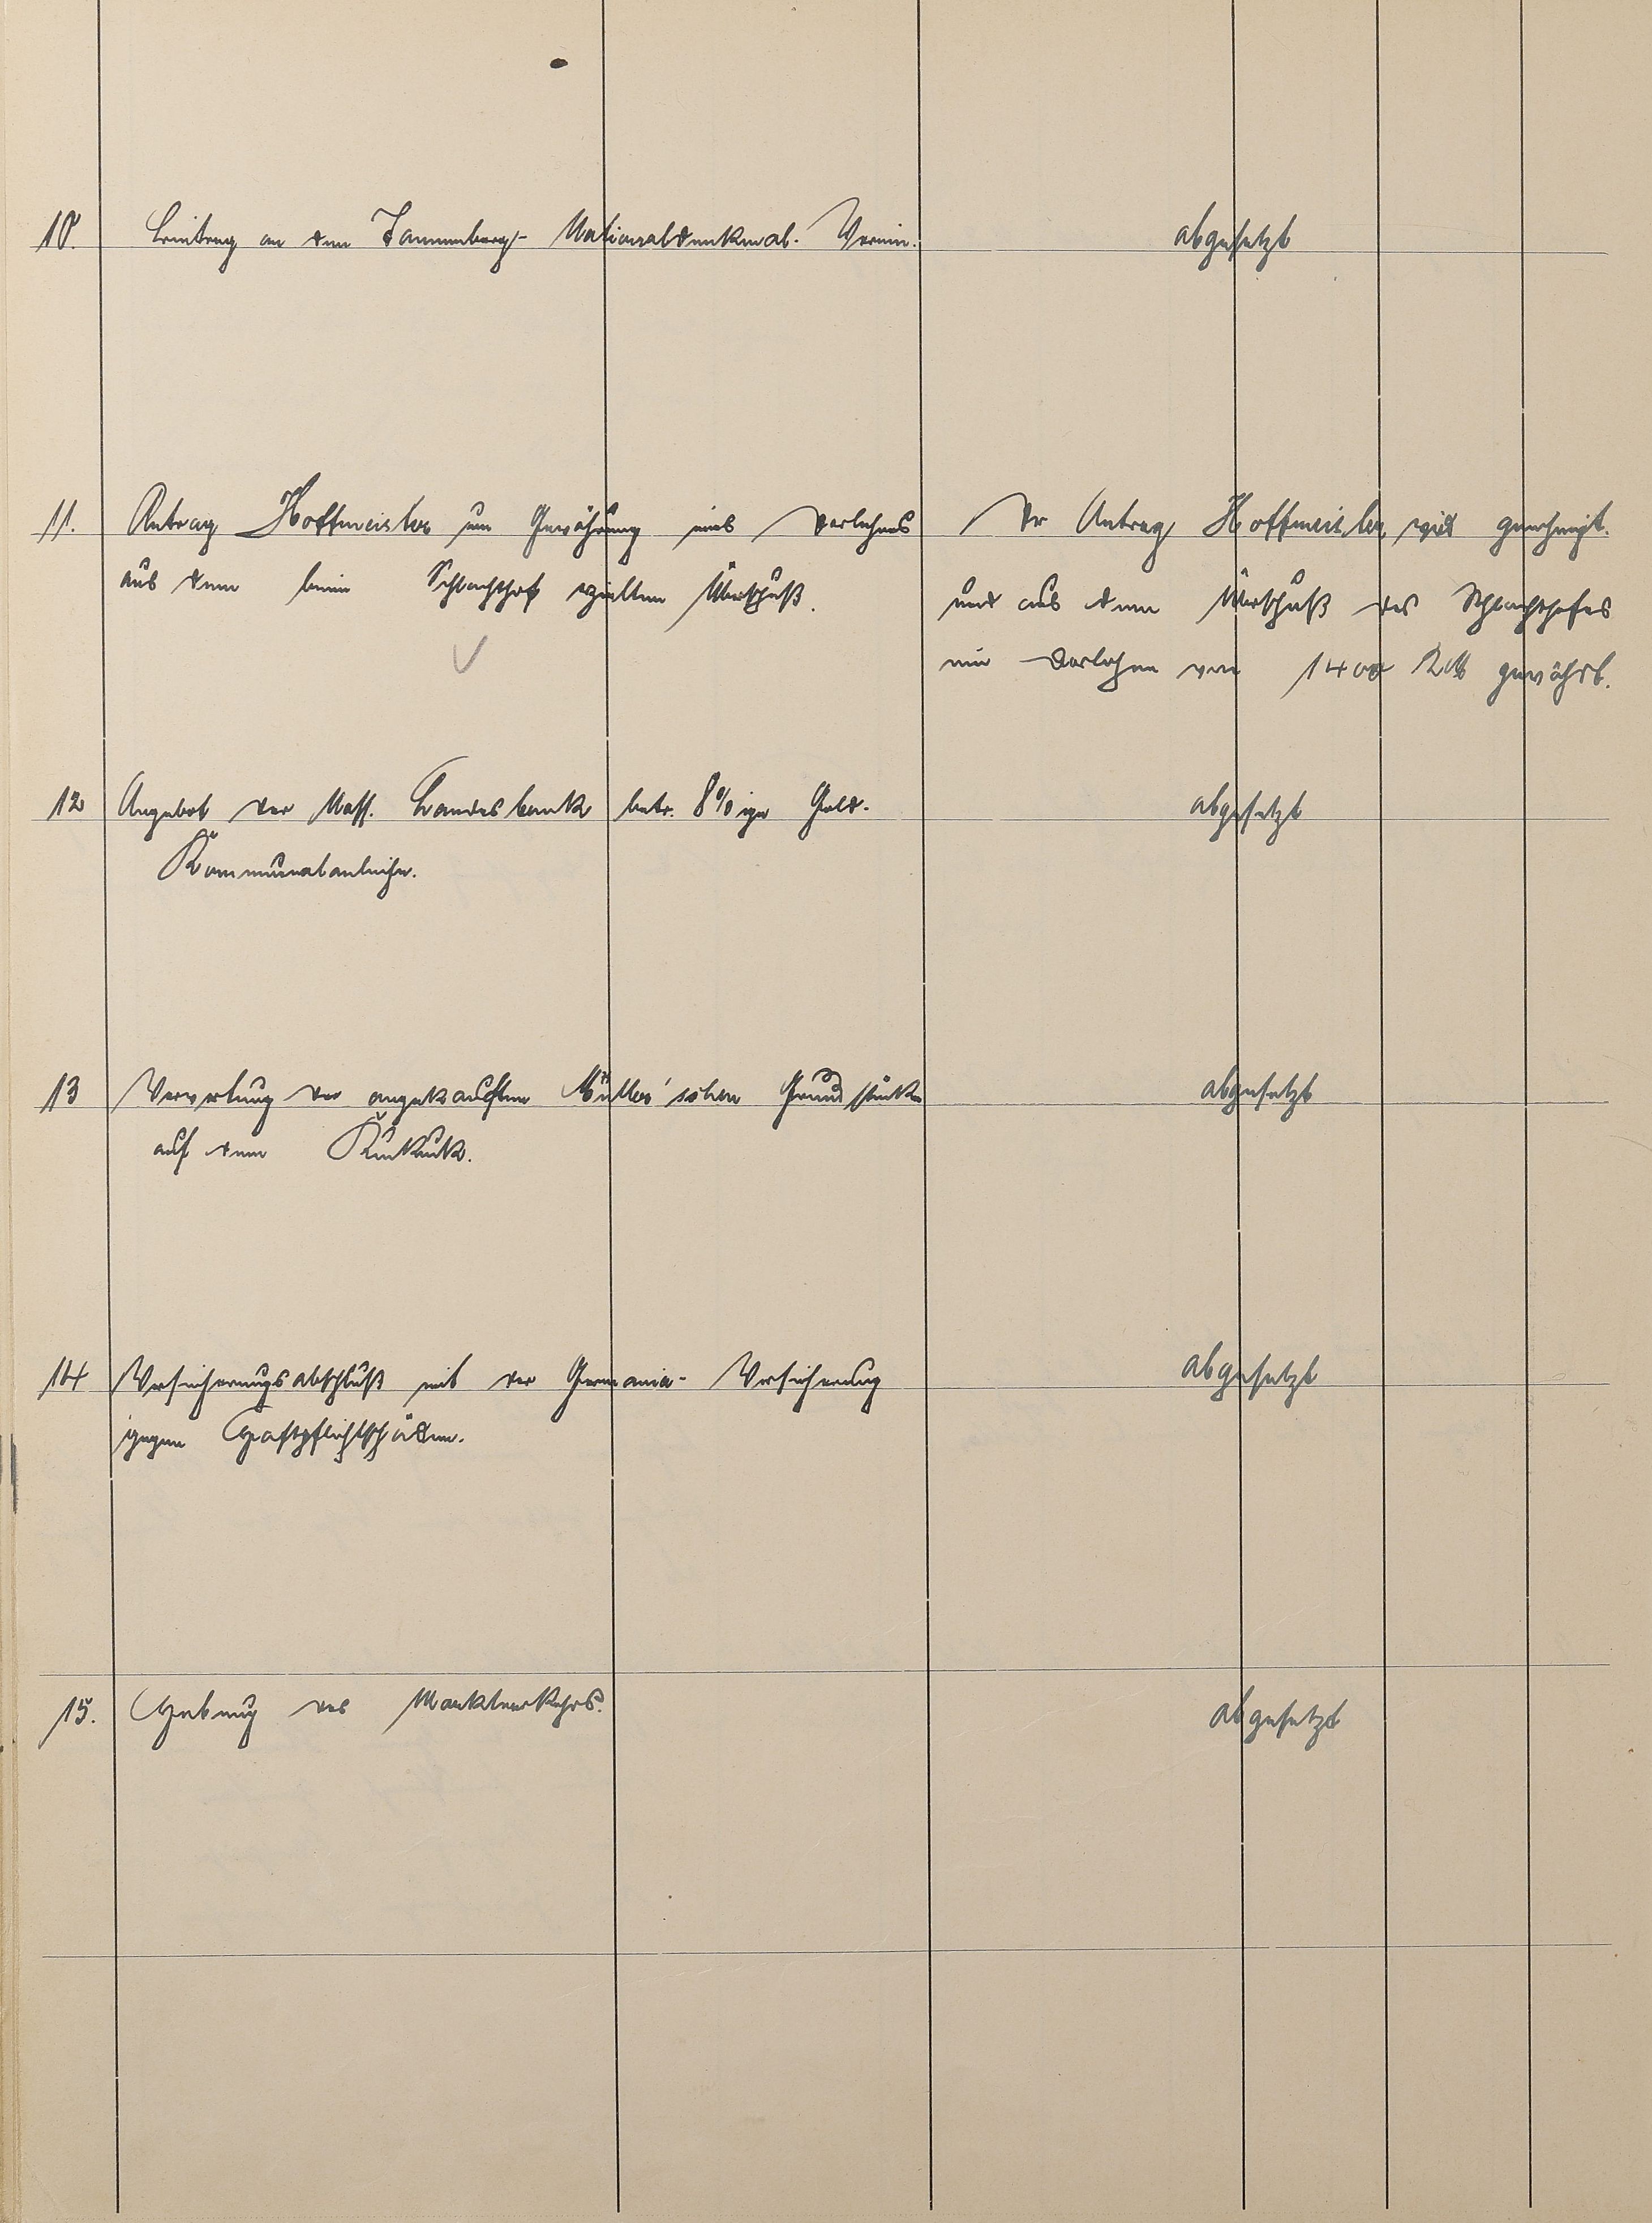 10. Beitrag an den Tannenberg-Nationaldenkmal-Verein. abgesetzt
11. Antrag Hoffmeister um Gewährung eines Darlehns
aus dem beim Schlachthof erzielten Überschuß.
Der Antrag Hoffmeister wird genehmigt.
und aus dem Überschuß des Schlachthofes
ein Darlehen von 1400 RM gewährt.
12 Angebot der Nass. Landesbank betr. 8%ige Gold- abgesetzt
Kommunalanleihe.
13 Verwertung der angekauften Müller'schen Grundstücke abgesetzt
auf dem Kuckuck.
14 Versicherungsabschluß mit der Germania-Versicherung abgesetzt
gegen Haftpflichtschäden.
15. Hebung des Marktverkehrs. abgesetzt